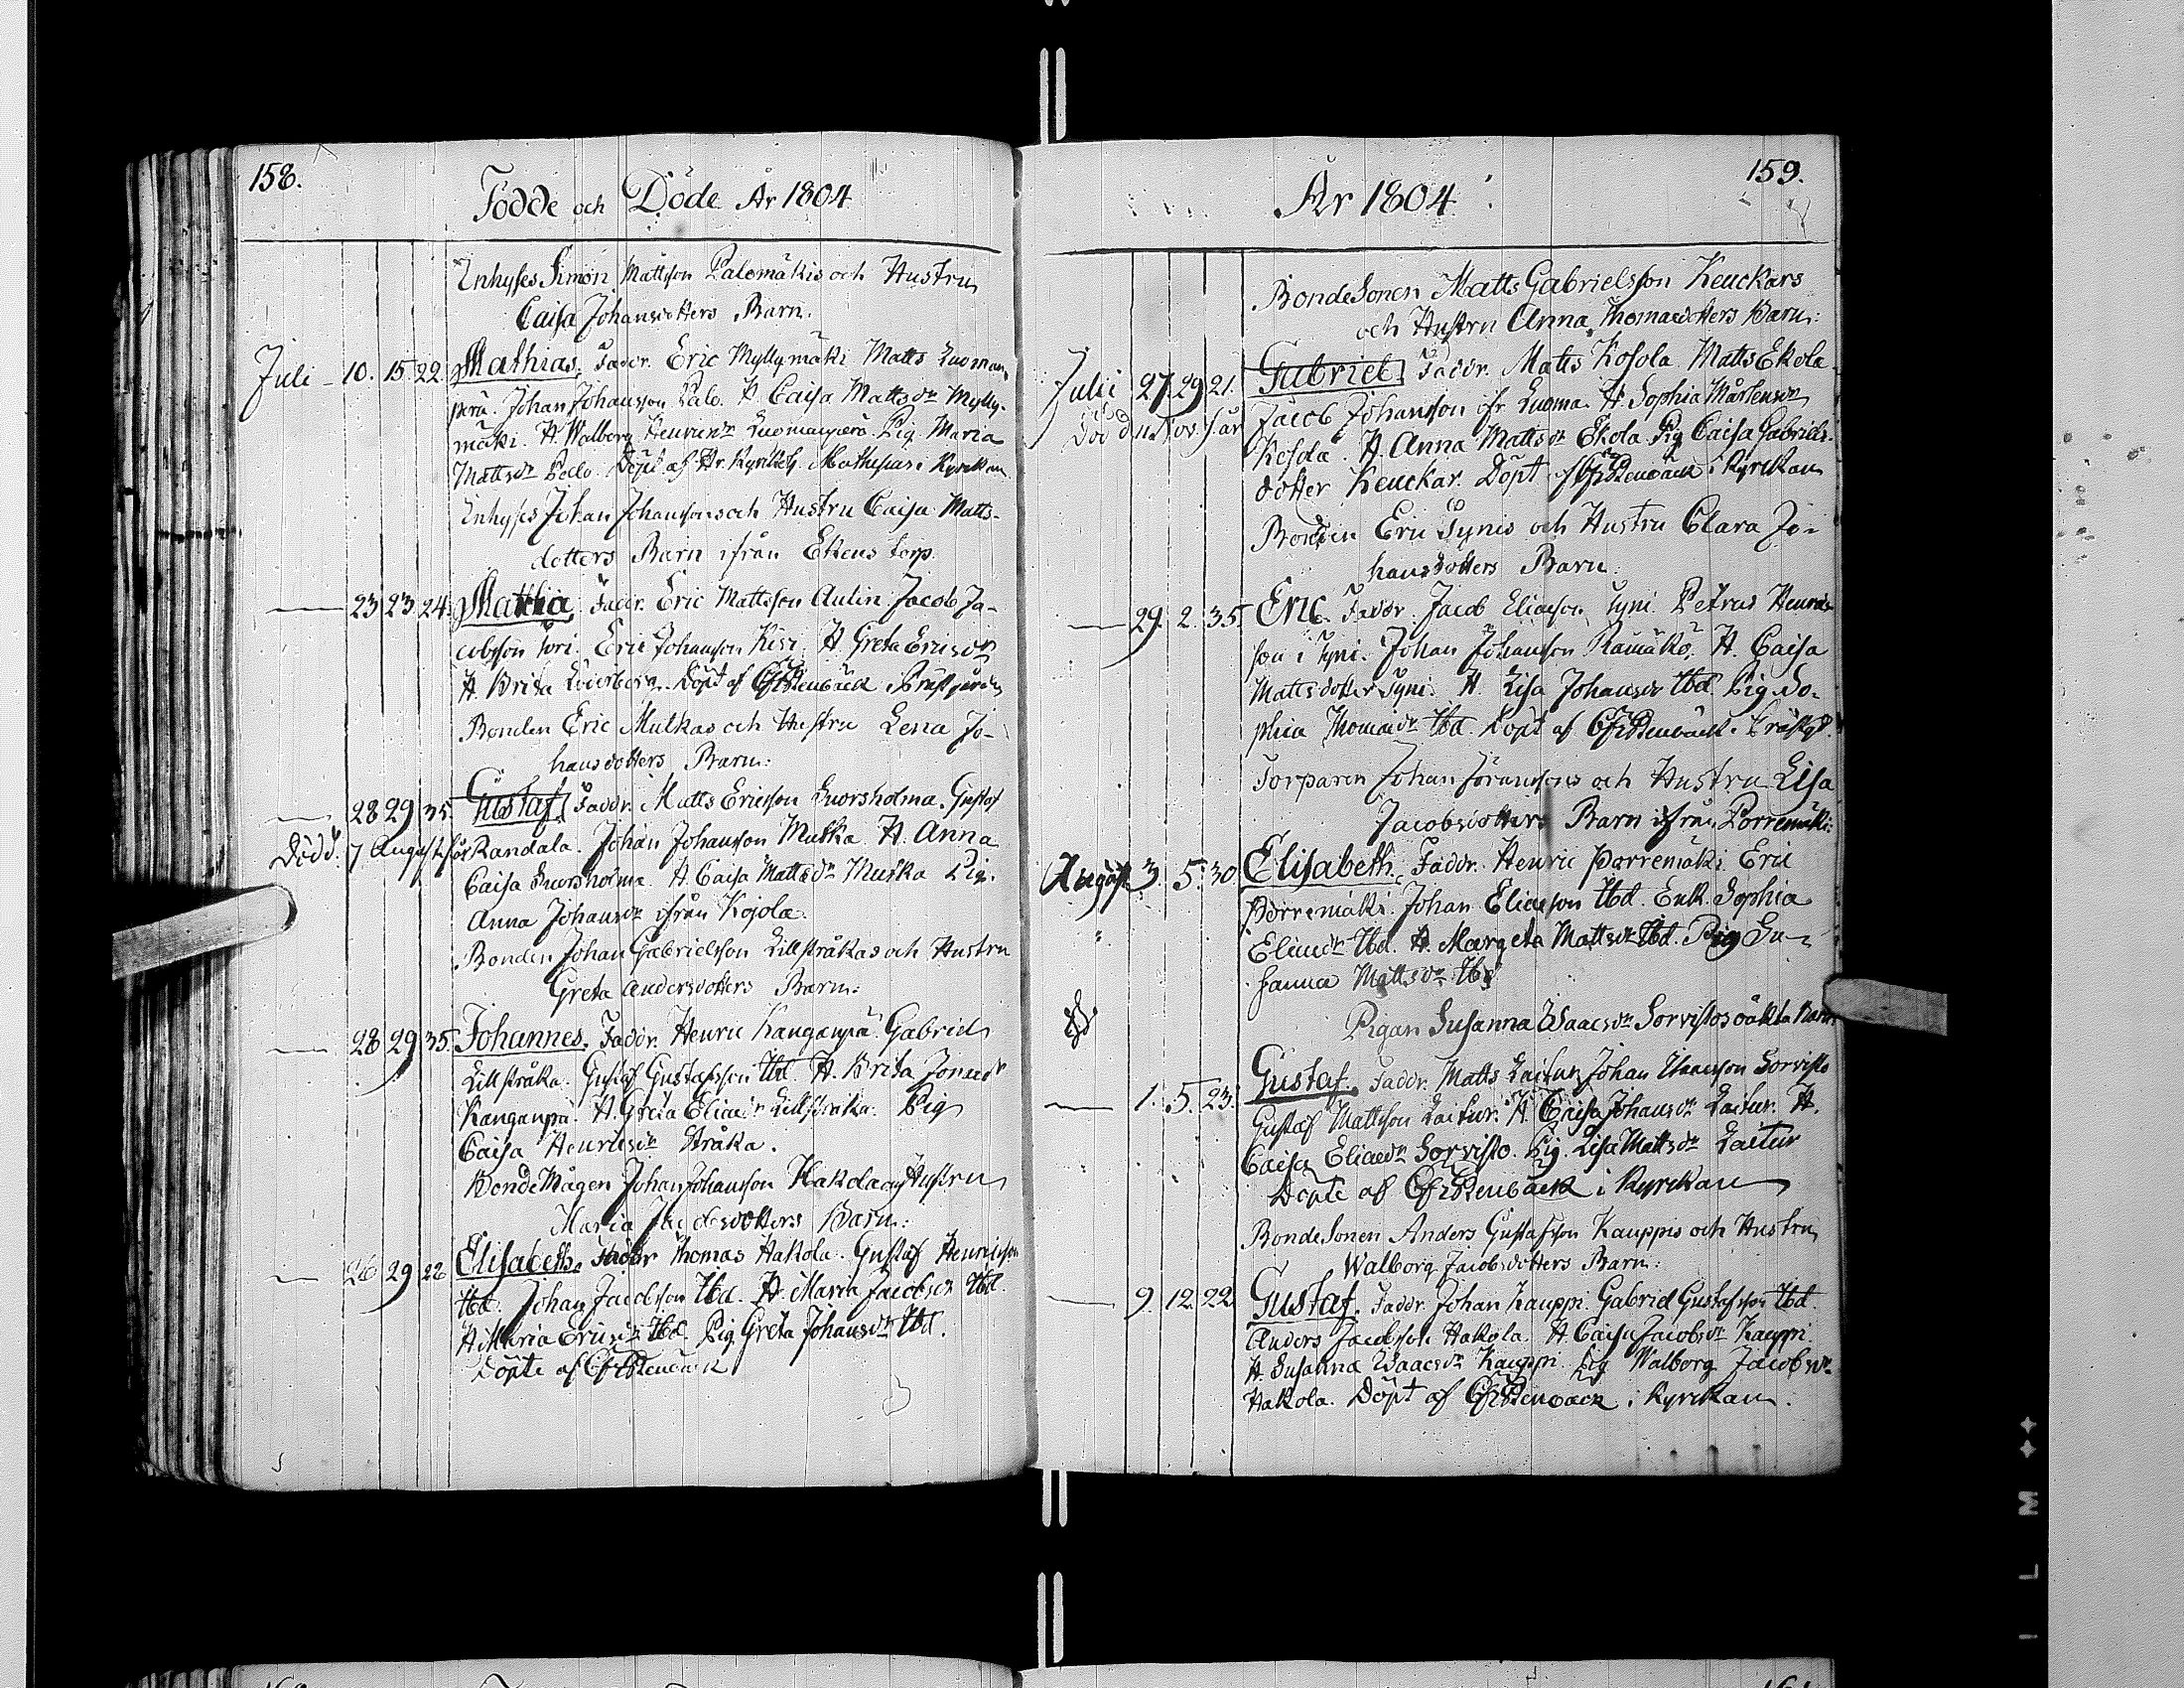 158.
Födde och Döde År 1804
Inhyses Simon Mattsson Palomäkis och Hustru
Caisa Johansdotters Barn.
Juli - 10. 15. 22. Mathias. Faddr. Eric Myllymäki Matts Luoman
perä. Johan Johansson Palo. H. Caisa Mattsdr Mylly-
mäki. H. Walborg Henricsdr Luomanperä. Pig. Maria
Mattsdr Palo. Döpt af Hr. Kyrkoh. Mathesius i Kyrckan
Inhyses Johan Johanssons och Hustru Caisa Matts-
dotters Barn ifrån Ekens torp.
23 23 24. Faddr. Eric Mattsson Aulin Jacob Ja-
cobsson Eric Johansson H. Greta Ericsdr
H. Brita Döpt af
Bonden Eric Mutkas och Hustru Lena Jo-
hansdotters Barn:
28 29 35. Gustaf. Faddr. Matts Ericsson Gustaf
Dödd. 7 August Randala. Johan Johansson Mutka H. Anna
Caisa H. Caisa Mattsdr Mutka Pig.
Anna Johansdr ifrån Kojola.
Bonden Johan Gabrielsson Lillstråkas och Hustru
Greta Andersdotters Barn:
28 29 35. Johannes. Faddr. Henric Kanganpä. Gabriel
Lillstråka. Gustaf Gustafsson Ibd. H. Brita
Kanganpä. H. Greta Eliaedr Lillstråka. Pig
Caisa Henricsdr Stråka.
BondeMågen Johan Johansson Hakola och Hustru
Maria Jacobsdotters Barn:
26 29 Elisabeth. Faddr Thomas Hakola. Gustaf Henricsson
Ibd. Johan Jacobsson Ibd. H. Maria Jacobsdr Ibd.
H. Maria Ericsdr Ibd. Pig. Greta Johansdr Ibd.
Döpte af
159.
År 1804
BondeSonen Matts Gabrielsson Keuckars
och Hustru Anna Thomaedotters Barn:
Julii 27. 29 21. Gabriel. Faddr. Matts Kosola. Matts Ekola.
Jacob Johansson ifr Luoma. H. Sophia Mårtensdr
Kosola. H. Anna Mattsdr Ekola. Pig Caisa Gabriels-
dotter Keuckar. Döpt af i Kyrckan
Bonden Eric Tynis och Hustru Clara Jo-
hansdotters Barn:
29. 2. 35. Eric. Faddr. Jacob Eliaesson Tyni. Petrus Henrics-
son i Tyni. Johan Johansson H. Caisa
Mattsdotter Tyni. H. Lisa Johansdr Ibd. Pig. So-
phia Thomaedr Ibd. Döpt af
Torparen Johan Johanssons och Hustru Lisa
Jacobsdotters Barn ifrån Porremäki:
August 3. 5. 30 Elisabeth. Faddr. Henric Porremäki Eric
Porremäki. Johan Eliaesson Ibd. Enk. Sophia
Eliaedr Ibd. H. Margeta Mattsdr Ibd. Pig Su-
sanna Mattsdr Ibd
Pigan Susanna Isaacsdr Sorvistos oäkta Barn
1. 5. 23. Gustaf. Faddr. Matts Laitur Johan Sorvisto
Gustaf Mattsson Laitur. H Caisa Johansdr Laitur. H.
Caisa Eliaedr Sorvisto. Pig. Lisa Mattsdr Laitur
Döpte af i Kyrckan
BondeSonen Anders Gustafsson Kauppis och Hustru
Walborg Jacobsdotters Barn:
9. 12. 22. Gustaf. Faddr. Johan Kauppi. Gabriel Gustafsson Ibd.
Anders Jacobsson Hakola. H. Caisa Jacobsdr Kauppi.
H. Susanna Isaacsdr Kauppi. Pig Walborg Jacobsdr
Hakola. Döpt af i Kyrckan.